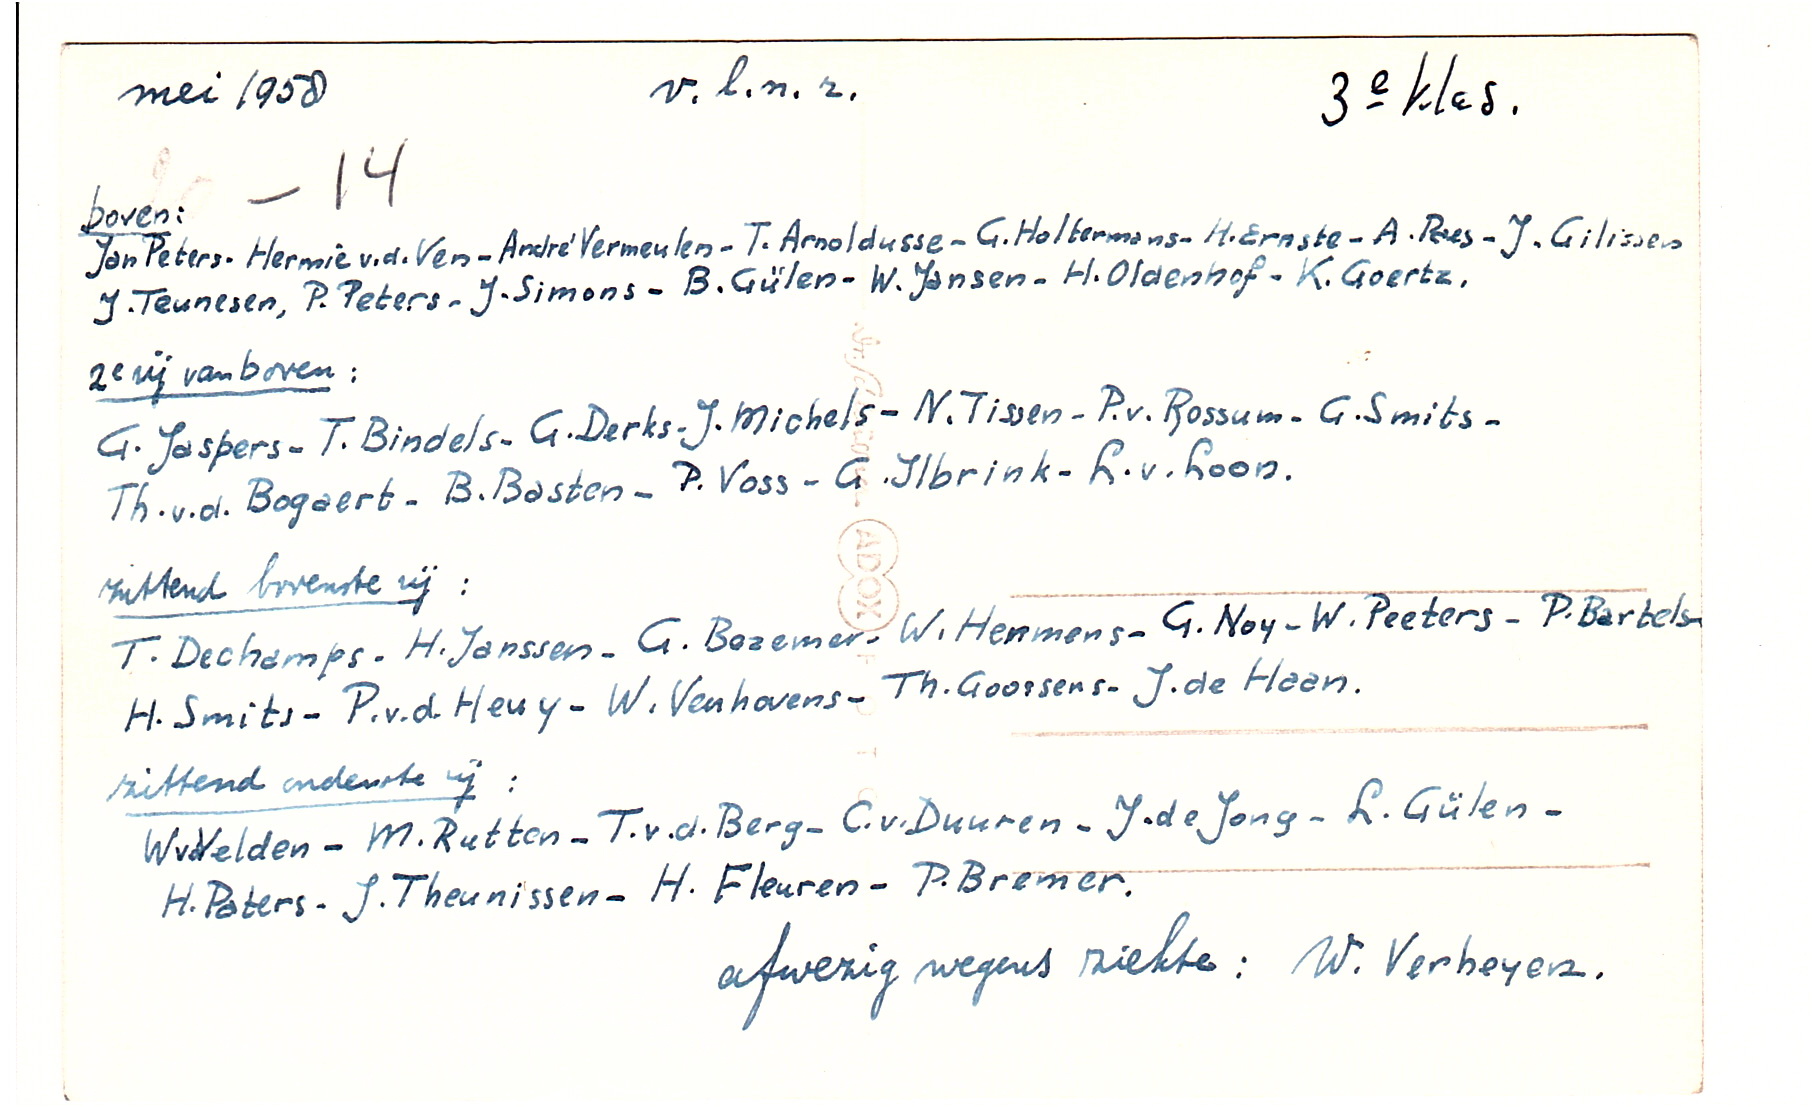 mei 1958 v. l. n. r. 3e klas.
- 14
boven:
Jan Peters - Hermie v.d. Ven - André Vermeulen - T. Arnoldusse - G. Holtermans - H. Ernste - A. Paes - J. Gilissen
J. Teunesen, P. Peters - J. Simons - B. Gülen - W. Jansen - H. Oldenhof - K. Goertz.
2e rij van boven:
G. Jaspers - T. Bindels - G. Derks - J. Michels - N. Tissen - P. v. Rossum - G. Smits -
Th. v.d. Bogaert - B. Basten - P. Voss - G. Ilbrink - L. v. Loon.
zittend bovenste rij:
T. Dechamps - H. Janssen - G. Bozemer - W. Hermens - G. Noy - W. Peeters - P. Bartels -
H. Smits - P. v.d. Heuy - W. Venhovens - Th. Goossens - J. de Haan.
zittend onderste rij:
W. v.d. Velden - M. Rutten - T. v.d. Berg - C. v. Duuren - J. de Jong - L. Gülen -
H. Paters - J. Theunissen - H. Fleuren - P. Bremer.
afwezig wegens ziekte: W. Verheyen.
ADOX FOTO